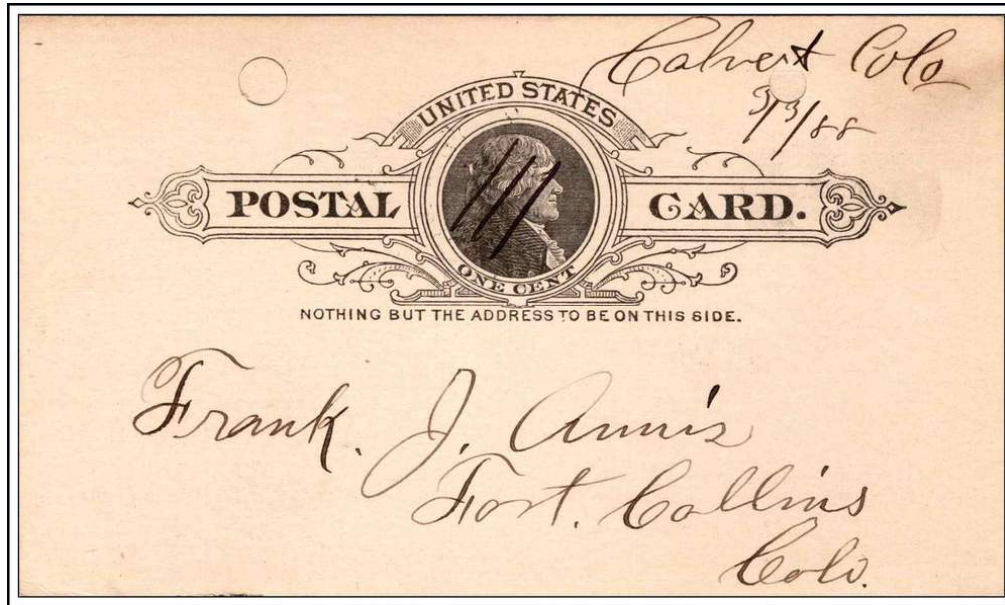 Calvert Colo
3/3/88
UNITED STATES
POSTAL CARD.
ONE CENT
NOTHING BUT THE ADDRESS TO BE ON THIS SIDE.
Frank. J. Annis
Fort. Collins
Colo.